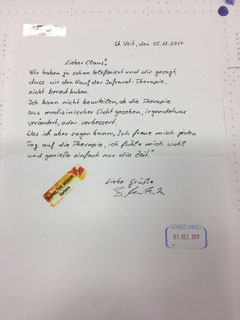 St. Veit, den 05.12.2017
Lieber Claus!
Wir haben ja schon telefoniert und dir gesagt,
dass wir den Kauf der Infrarot-Therapie,
nicht bereut haben.
Ich kann nicht beurteilen, ob die Therapie
aus medizinischer Sicht gesehen, irgendetwas
verändert, oder verbessert.
Was ich aber sagen kann, Ich freue mich jeden
Tag auf die Therapie, ich fühle mich wohl
und genieße einfach nur die Zeit."
Liebe Grüße
EINGELANGT
07. DEZ. 2017